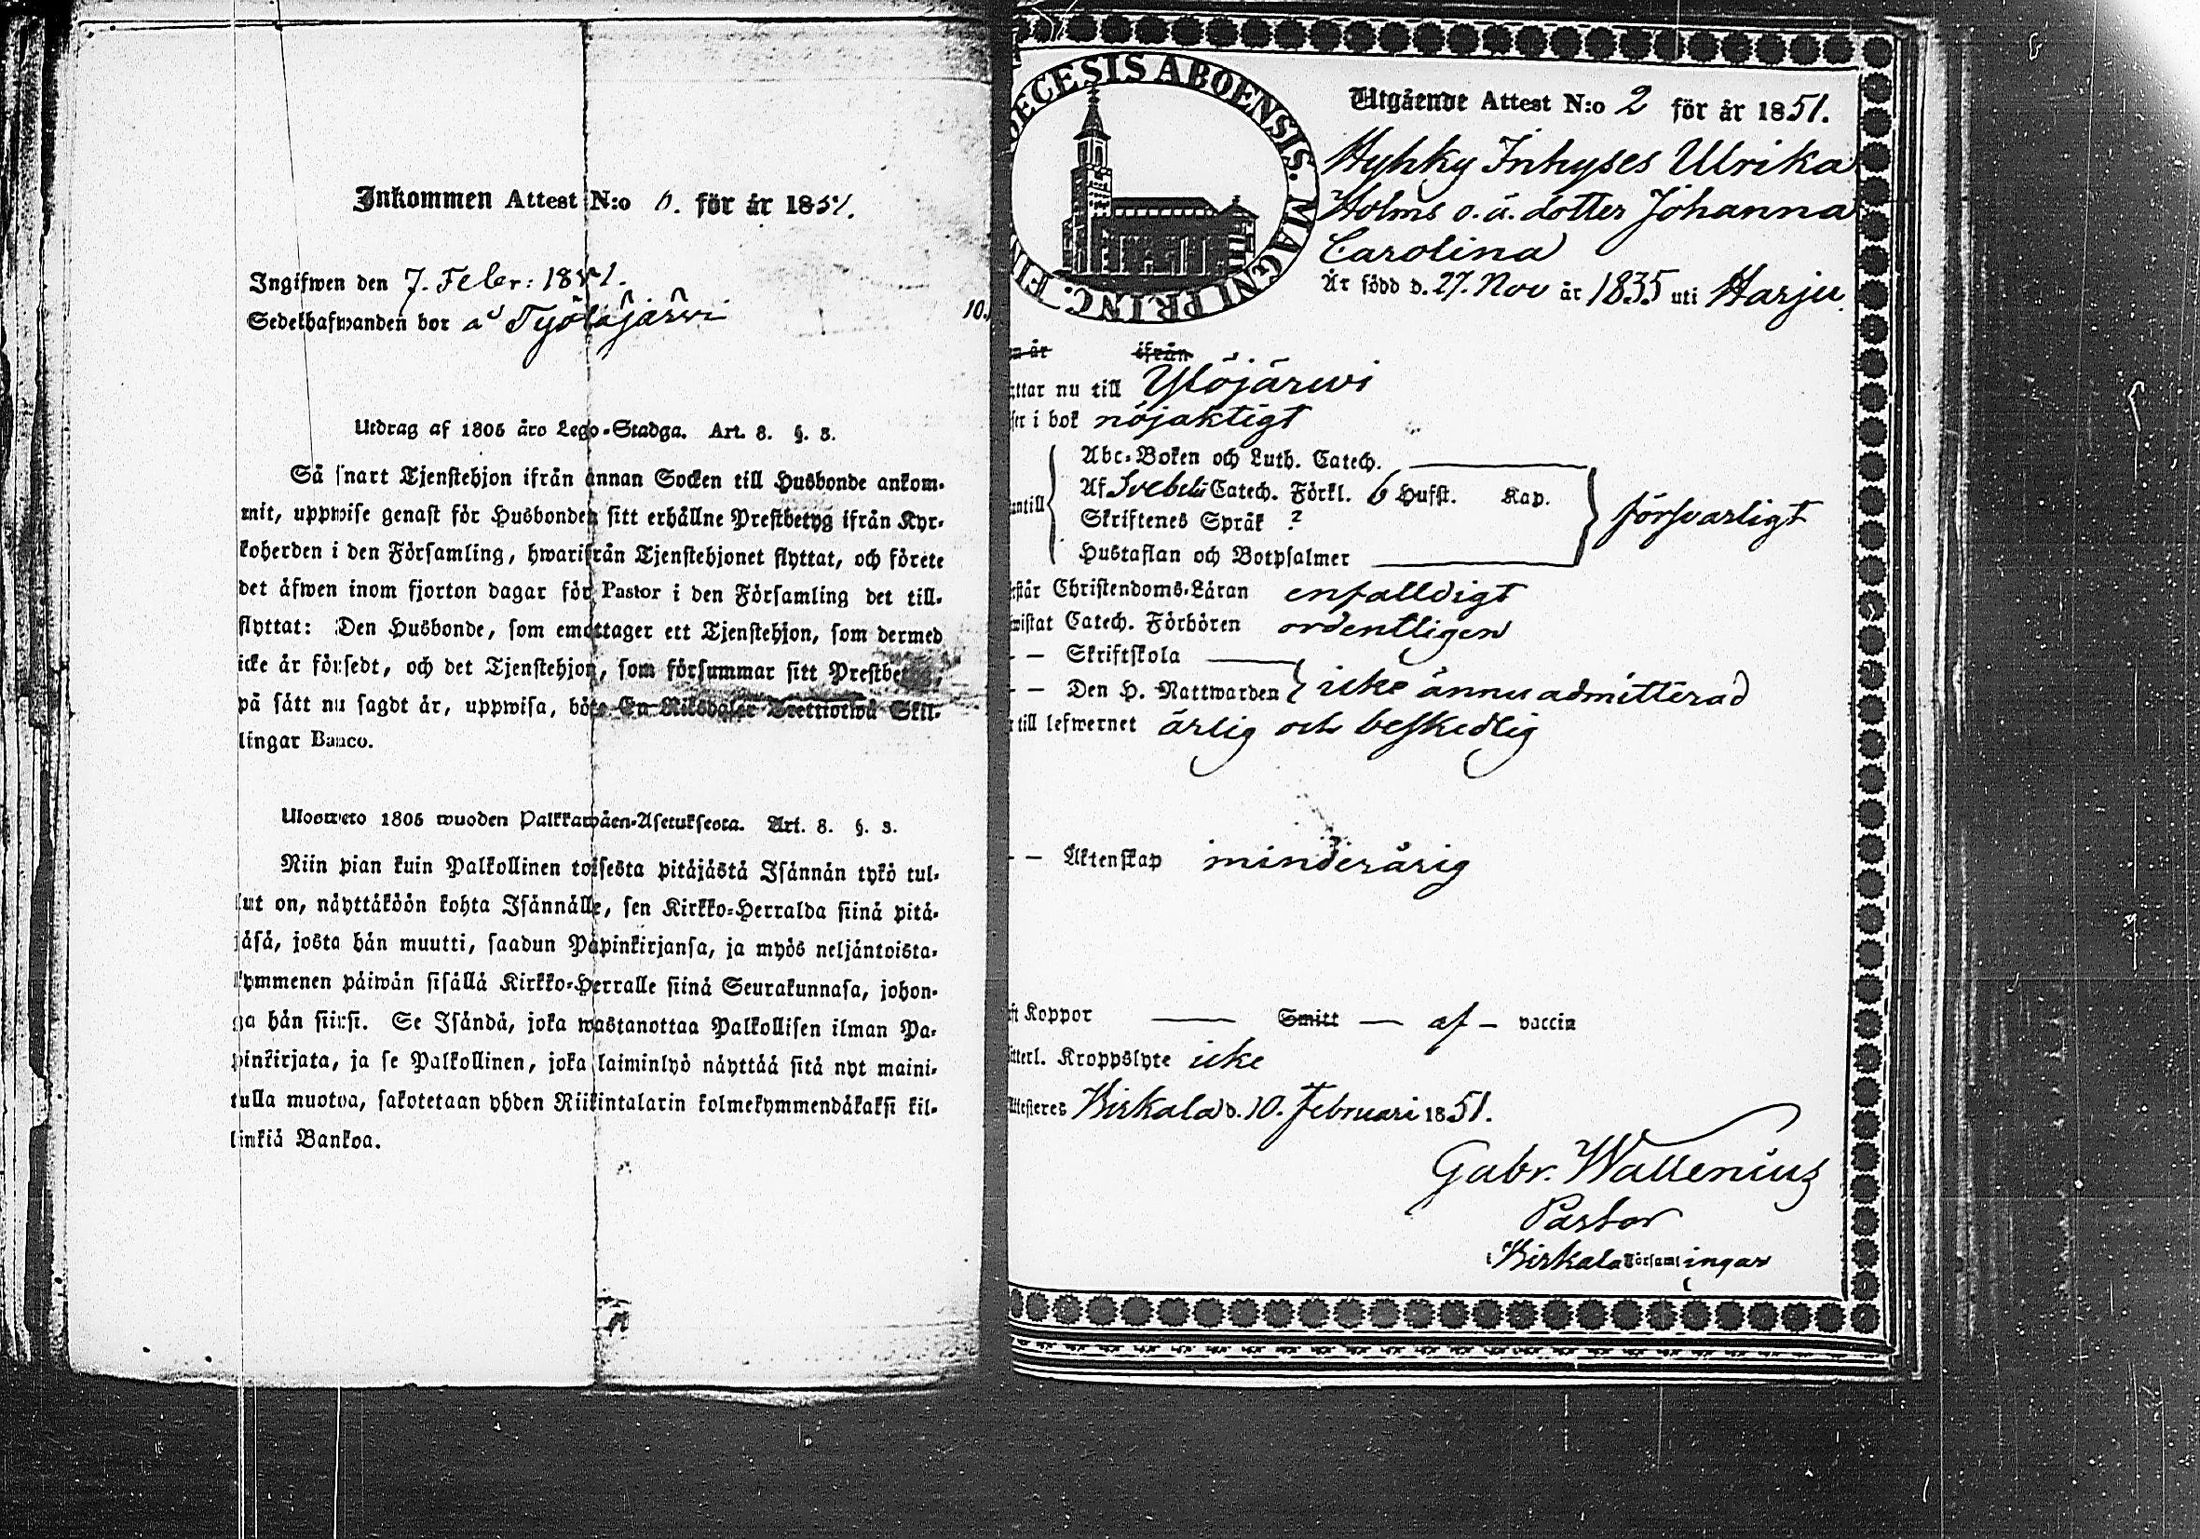 Inkommen Attest N:o 6. för år 1851.
Ingifwen den 7. Febr: 1851.
Sedelhafwanden bor å
10.
Utdrag af 1805 års Lego-Stadga. Art. 8. §. 3.
Så snart Tjenstehjon ifrån annan Socken till Husbonde ankom-
mit, uppwise genast för Husbonden sitt erhållne Prestbetyg ifrån Kyr-
koherden i den Församling, hwarifrån Tjenstehjonet flyttat, och förete
det äfwen inom fjorton dagar för Pastor i den Församling det till-
flyttat: Den Husbonde, som emottager ett Tjenstehjon, som dermed
icke är försedt, och det Tjenstehjon, som försummar sitt Prestbetyg,
på sätt nu sagdt är, uppwisa, böte En Riksdaler Trettiotwå Skil-
lingar Banco.
Ulosweto 1805 wuoden Palkkawäen-Asetuksesta. Art. 8. §. 3.
Niin pian kuin Palkollinen toisesta pitäjästä Isännän tykö tul-
lut on, näyttäköön kohta Isännälle, sen Kirkko-Herralda siinä pitä-
jäsä, josta hän muutti, saadun Papinkirjansa, ja myös neljäntoista-
kymmenen päiwän sisällä Kirkko-Herralle siinä Seurakunnasa, johon-
ga hän siirsi. Se Isändä, joka wastanottaa Palkollisen ilman Pa-
pinkirjata, ja se Palkollinen, joka laiminlyö näyttää sitä nyt maini-
tulla muotoa, sakotetaan yhden Riikintalarin kolmekymmendäkaksi kil-
linkiä Bankoa.
ECESIS ABOENSIS. MAGNI PRINC. FIN
Utgående Attest N:o 2 för år 1851.
Hyhky Inhyses Ulrika
Holms o. ä. dotter Johanna
Carolina
Är född d. 27. Nov år 1835 uti Harju.
n är ifrån
ttar nu till Ylöjärwi
ser i bok nöjaktigt
Abc-Boken och Luth. Catech.
Af Svebelii Catech. Förkl. 6 Hufst. Kap.
antill
Skriftenes Språk ?
försvarligt
Hustaflan och Botpsalmer
rstår Christendoms-Läran enfalldigt
wistat Catech. Förhören ordentligen
- - Skriftskola
- - Den H. Nattwarden icke ännu admitterad
r till lefwernet ärlig och beskedlig
- - Äktenskap minderårig
ft Koppor Smitt af vaccin
tterl. Kroppslyte icke
Attesteres Birkala d. 10. Februari 1851.
Gabr. Wallenius
Pastor
i Birkala Församlingar